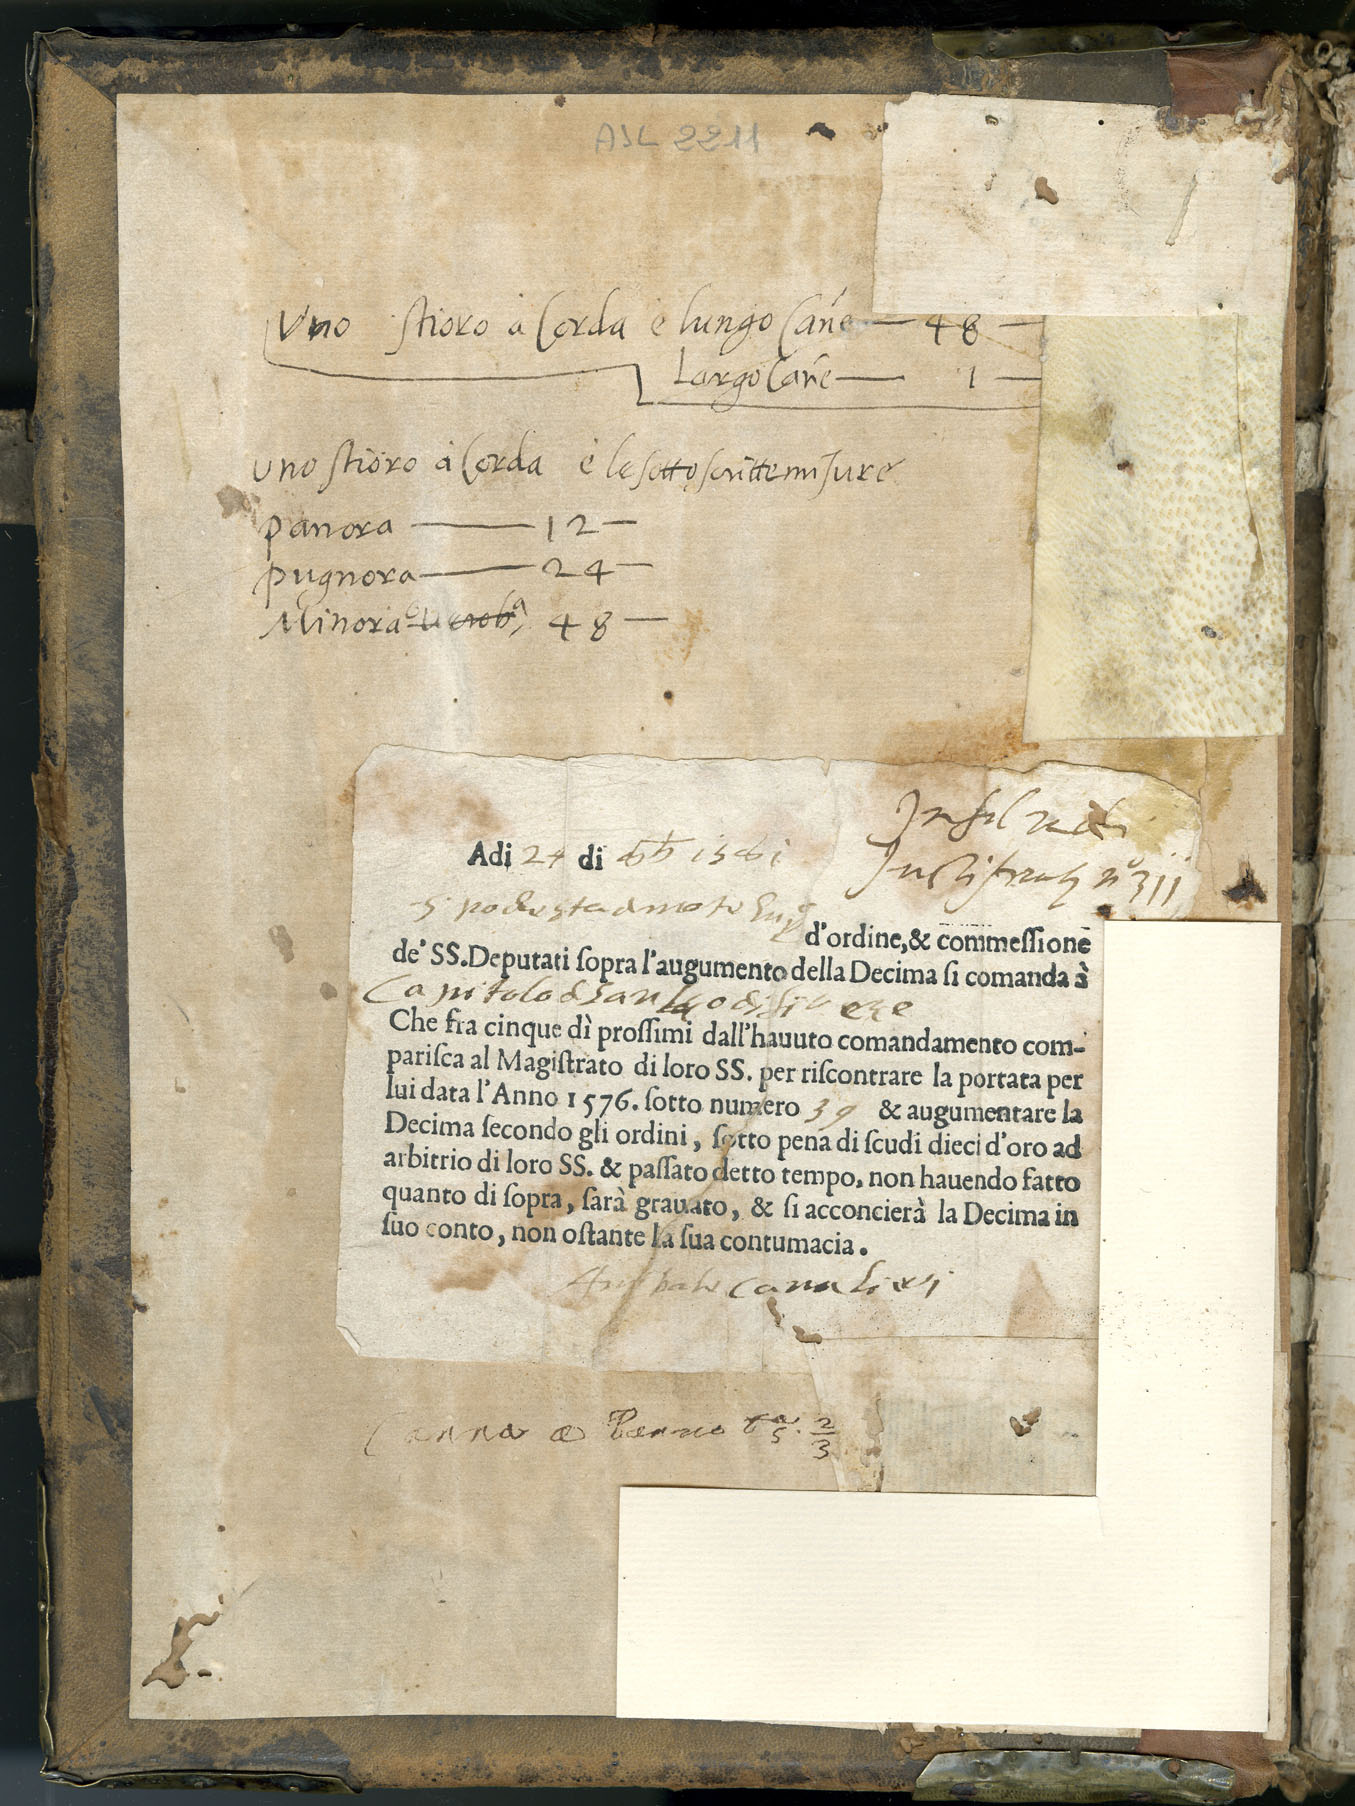 ASL 2211
Uno stioro à Corda è lungo Canne — 48 —
Largo Canne — 1 —
uno stioro à Corda è le sotto scritte misure
panora — 12 —
pugnora — 24 —
Minora 48 —
Adi 24 di 1581
d'ordine, & commessione
de' SS. Deputati sopra l'augumento della Decima si comanda à
Capitolo di San
Che fra cinque dì prossimi dall'hauuto comandamento com-
parisca al Magistrato di loro SS. per riscontrare la portata per
lui data l'Anno 1576. sotto numero 39 & augumentare la
Decima secondo gli ordini, sotto pena di scudi dieci d'oro ad
arbitrio di loro SS. & passato detto tempo, non hauendo fatto
quanto di sopra, sarà grauato, & si acconcierà la Decima in
suo conto, non ostante la sua contumacia.
Canna a 5. 2/3